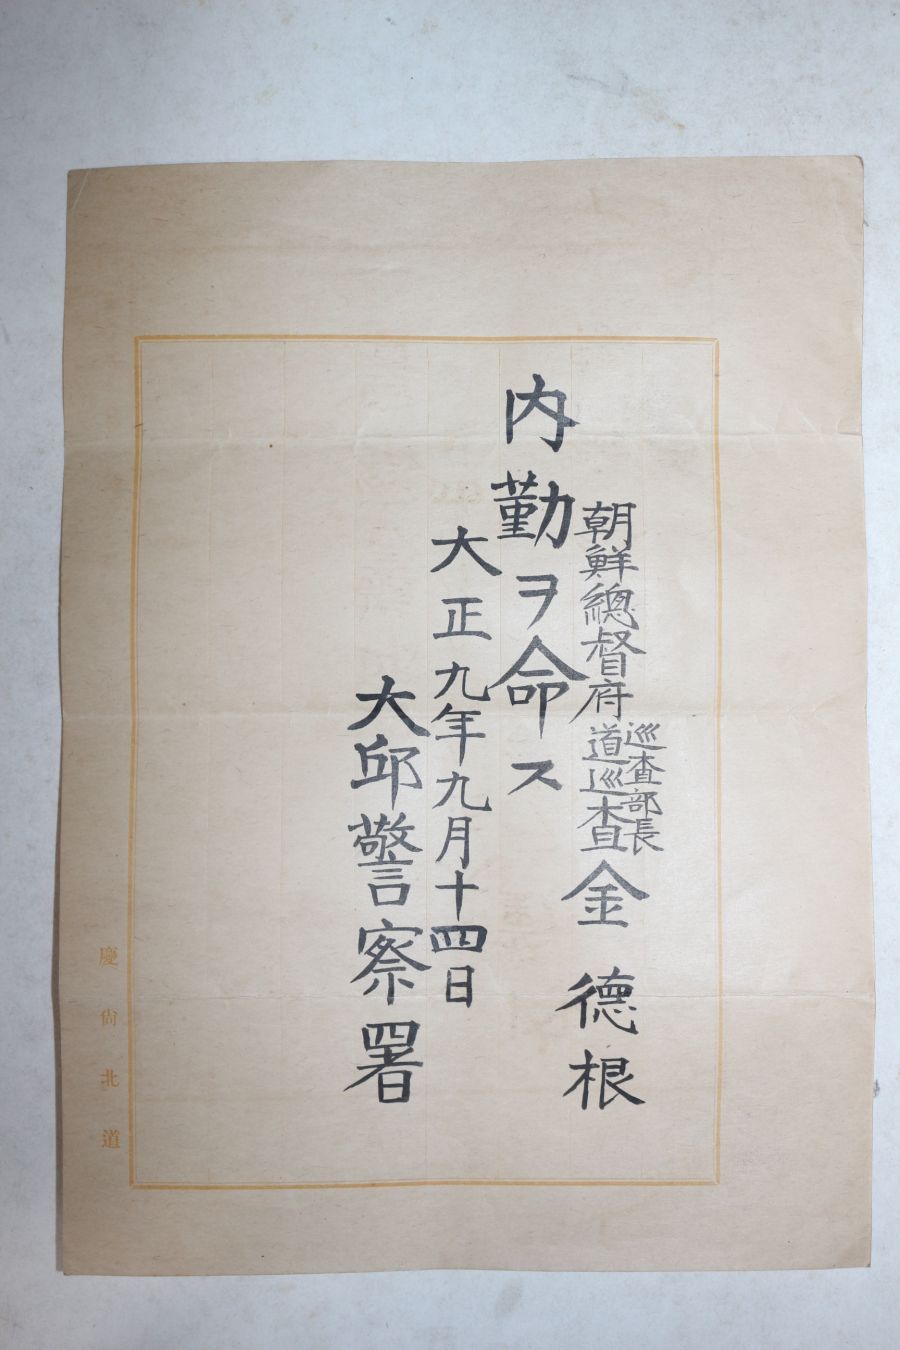 朝鮮總督府道巡査 金德根
巡査部長
内勤ヲ命ス
大正九年九月十四日
大邱警察署
慶尙北道